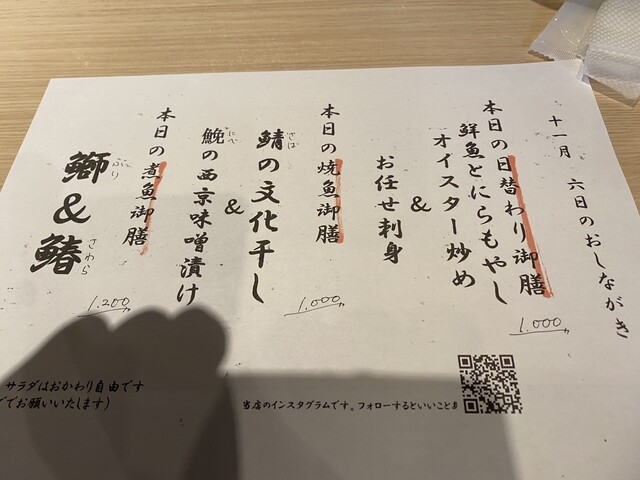 十一月 六日のおしながき
本日の日替わり御膳
鮮魚とにらもやし
オイスター炒め
&
お任せ刺身
1.000
本日の焼魚御膳
さば
鯖の文化干し
&
にべ
鮸の西京味噌漬け
1.000
本日の煮魚御膳
ぶり
鰤&鰆
さわら
1.200
サラダはおかわり自由です
でお願いいたします)
当店のインスタグラムです。フォローするといいことあ